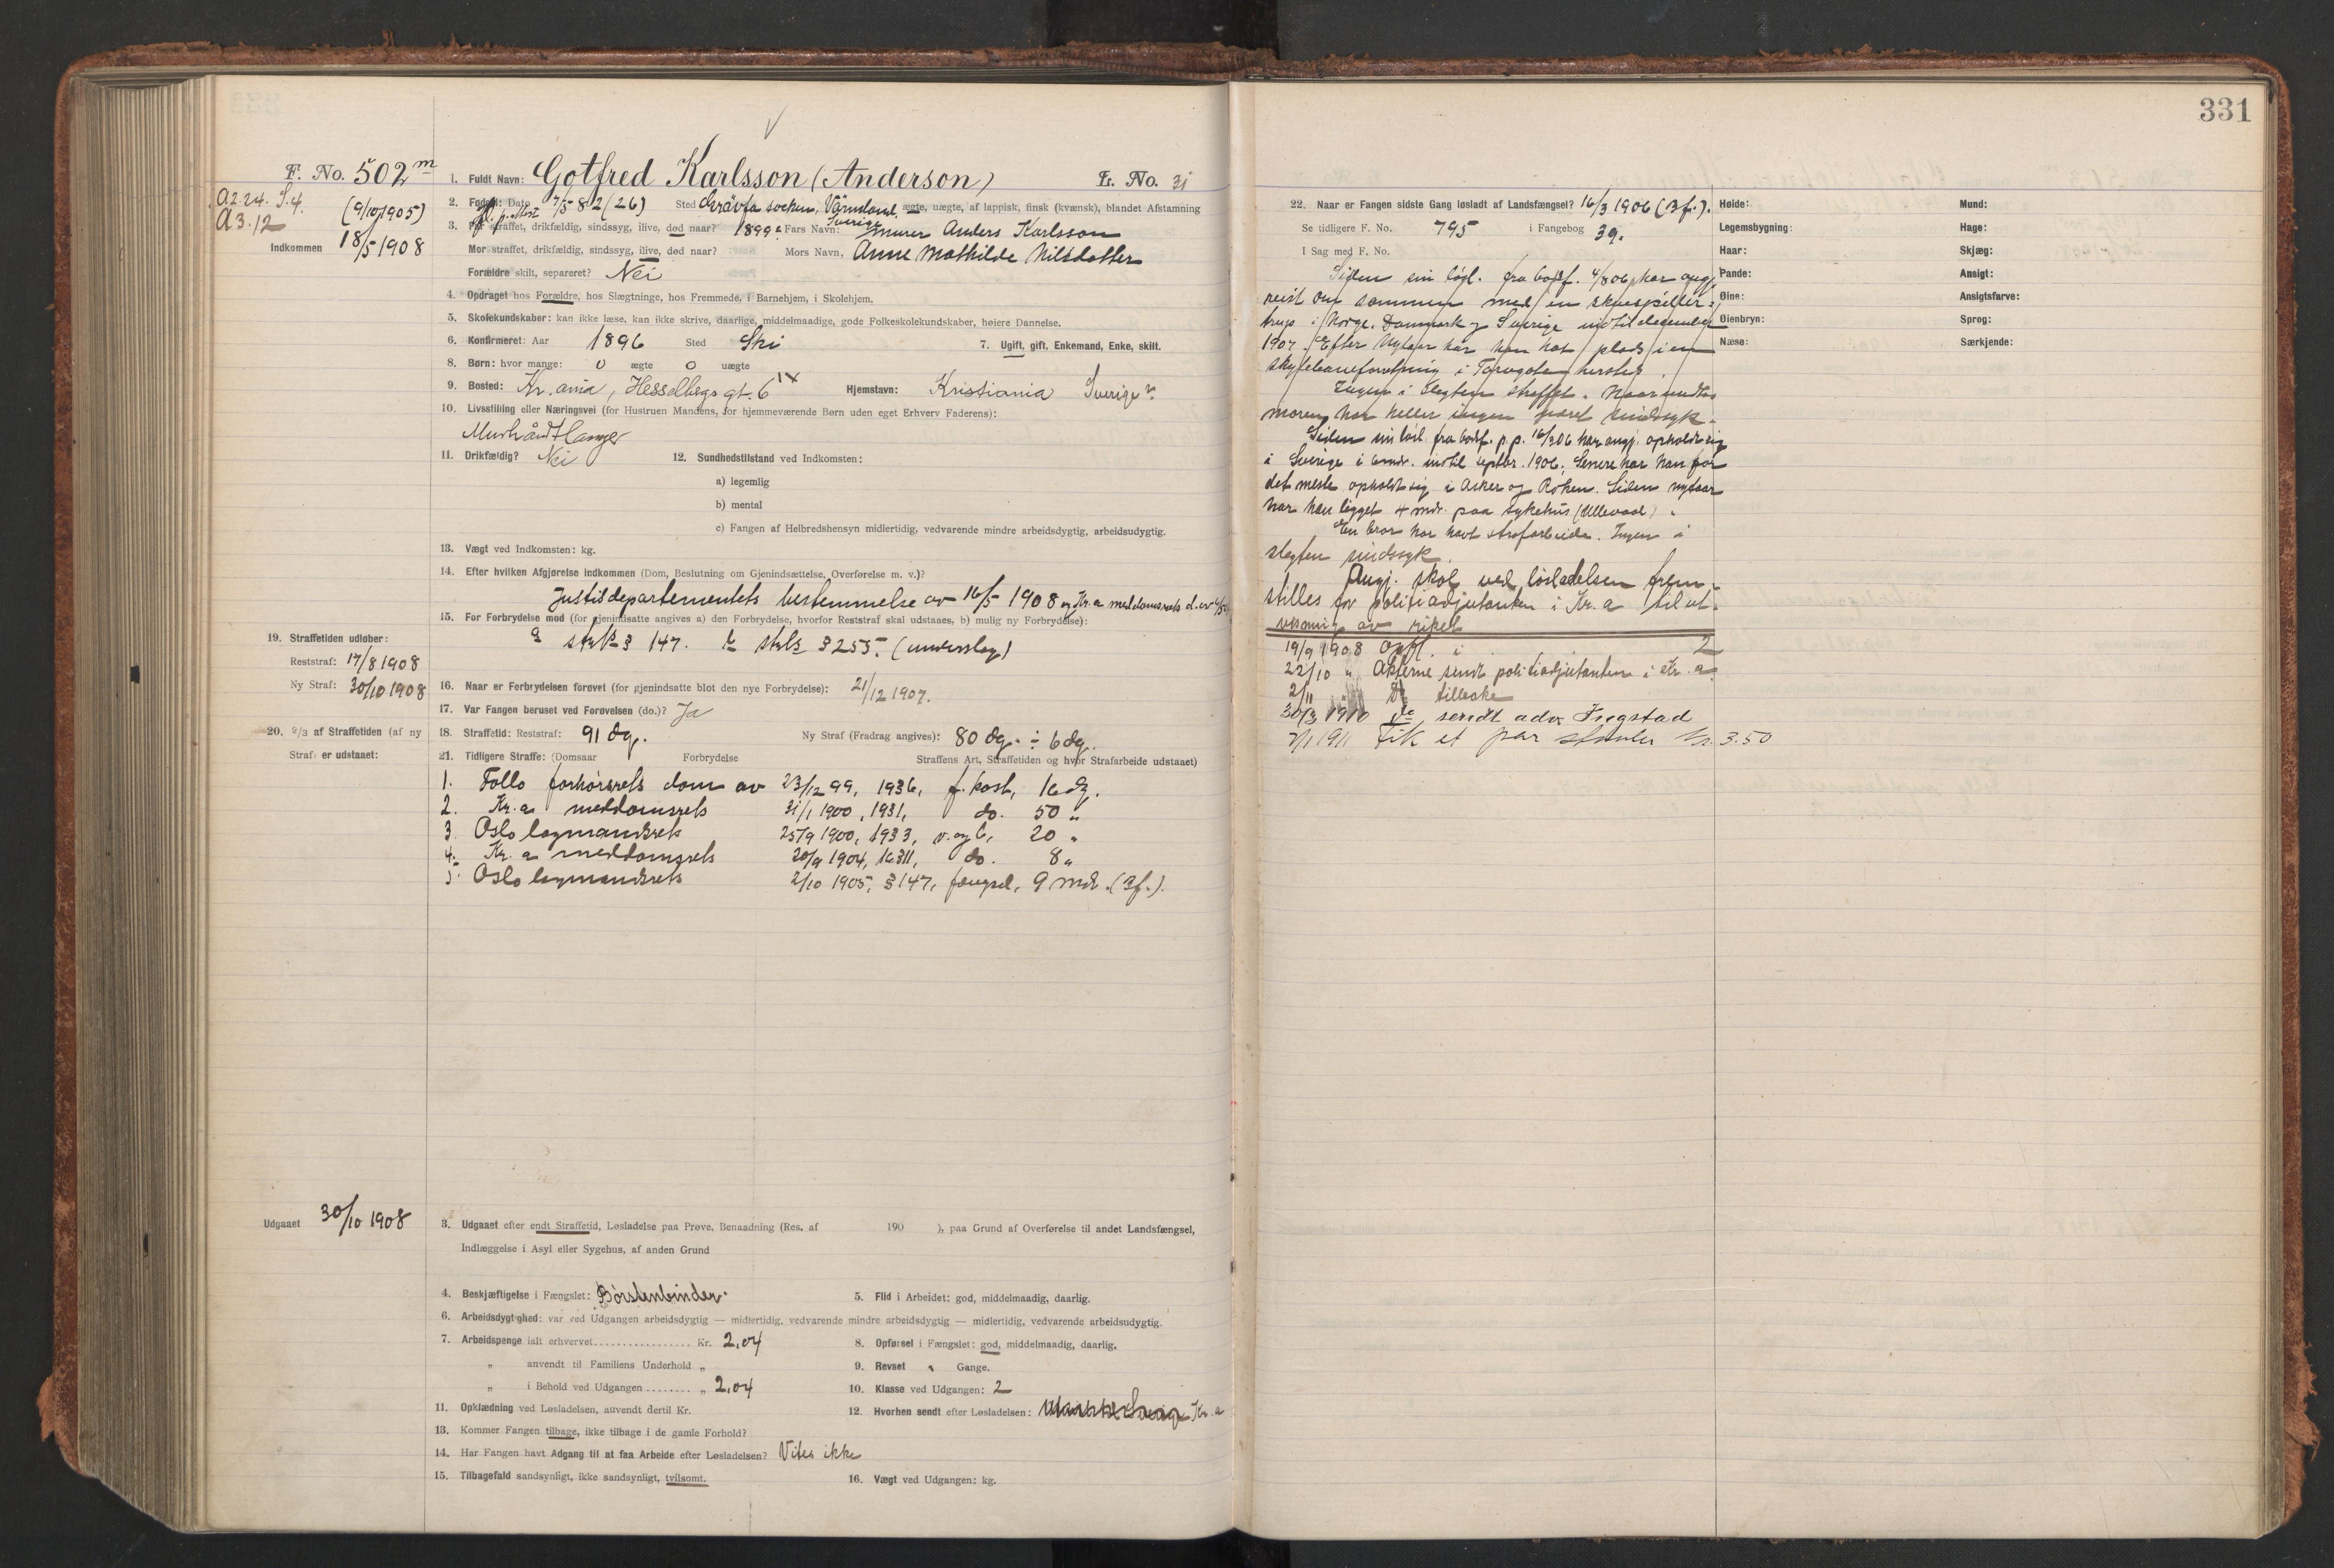 331
F. No. 502 m
A 2.24. S.4.
A 3.12
(9/10 1905)
Indkommen 18/5 1908
1. Fuldt Navn: Gotfred Karlsson (Anderson) L. No. 31
2. Født: Dato 7/5 82 (26) Sted Grävfa socken, Värmland, Sverige ægte, uægte, af lappisk, finsk (kvænsk), blandet Afstamning
3. Far straffet, drikfældig, sindssyg, ilive, død naar? 1899. Fars Navn: murer Anders Karlsson
Mor straffet, drikfældig, sindssyg, ilive, død naar? Mors Navn, Anne Mathilde Nilsdatter
Forældre skilt, separeret? Nei
4. Opdraget hos Forældre, hos Slægtninge, hos Fremmede, i Barnehjem, i Skolehjem.
5. Skolekundskaber: kan ikke læse, kan ikke skrive, daarlige, middelmaadige, gode Folkeskolekundskaber, høiere Dannelse.
6. Konfirmeret: Aar 1896 Sted Ski 7. Ugift, gift, Enkemand, Enke, skilt.
8. Børn: hvor mange: 0 ægte 0 uægte
9. Bosted: Kr.ania, Hesselbergs gt. 6 IX Hjemstavn: Kristiania Sverige
10. Livsstilling eller Næringsvei (for Hustruen Mandens, for hjemmeværende Børn uden eget Erhverv Faderens):
Murhåndtlanger
11. Drikfældig? Nei 12. Sundhedstilstand ved Indkomsten:
a) legemlig
b) mental
c) Fangen af Helbredshensyn midlertidig, vedvarende mindre arbeidsdygtig, arbeidsudygtig.
13. Vægt ved Indkomsten: kg.
14. Efter hvilken Afgjørelse indkommen (Dom, Beslutning om Gjenindsættelse, Overførelse m. v.)?
Justisdepartementets bestemmelse av 16/5 1908 og Kr.a meddomsrets d. av
15. For Forbrydelse mod (for gjenindsatte angives a) den Forbrydelse, hvorfor Reststraf skal udstaaes, b) mulig ny Forbrydelse):
a strl. § 147. b strls § 255. (underslag)
19. Straffetiden udløber:
Reststraf: 17/8 1908
Ny Straf: 30/10 1908
16. Naar er Forbrydelsen forøvet (for gjenindsatte blot den nye Forbrydelse): 21/12 1907.
17. Var Fangen beruset ved Forøvelsen (do.)? Ja
20. 2/3 af Straffetiden (af ny
Straf) er udstaaet:
18. Straffetid: Reststraf: 91 dg. Ny Straf (Fradrag angives): 80 dg. ÷ 6 dg.
21. Tidligere Straffe: (Domsaar Forbrydelse Straffens Art, Straffetiden og hvor Strafarbeide udstaaet)
1. Follo forhørsrets dom av 23/12 99, 1936, f. kost, 16 dg.
2. Kr.a meddomsrets 31/1 1900, 1931, do. 50 "
3. Oslo lagmandsrets 25/9 1900, 1933, v. og b, 20 "
4. Kr. a meddomsrets 20/9 1904, do. 8 "
5. Oslo lagmandsrets 2/10 1905, § 147, fængsel, 9 mdr. (Bf.).
Udgaaet 30/10 1908
3. Udgaaet efter endt Straffetid, Løsladelse paa Prøve, Benaadning (Res. af 190 ), paa Grund af Overførelse til andet Landsfængsel,
Indlæggelse i Asyl eller Sygehus, af anden Grund
4. Beskjæftigelse i Fængslet: Børstenbinder. 5. Flid i Arbeidet: god, middelmaadig, daarlig.
6. Arbeidsdygtighed: var ved Udgangen arbeidsdygtig — midlertidig, vedvarende mindre arbeidsdygtig — midlertidig, vedvarende arbeidsudygtig.
7. Arbeidspenge ialt erhvervet Kr. 2,04 8. Opførsel i Fængslet: god, middelmaadig, daarlig.
" anvendt til Familiens Underhold " 9. Revset " Gange.
" i Behold ved Udgangen " 2,04 10. Klasse ved Udgangen: 2
11. Opklædning ved Løsladelsen, anvendt dertil Kr. 12. Hvorhen sendt efter Løsladelsen: Kr. a
13. Kommer Fangen tilbage, ikke tilbage i de gamle Forhold?
14. Har Fangen havt Adgang til at faa Arbeide efter Løsladelsen? Vites ikke
15. Tilbagefald sandsynligt, ikke sandsynligt, tvilsomt. 16. Vægt ved Udgangen: kg.
22. Naar er Fangen sidste Gang løsladt af Landsfængsel? 16/3 1906 (Bf.).
Se tidligere F. No. 795 i Fangebog 39.
I Sag med F. No.
Siden sin løsl. fra bodsf. 4/8 06, har angj.
reist om sommeren med en skuespiller=
trup i Norge, Danmark og Sverige indtil
1907. Efter Nytaar har han hat plads i en
skytebaneforretning i Torvgaten hersteds.
Ingen i slegten straffet. Naar undtas
moren har heller ingen været sindssyk.
Siden sin løsl. fra bodsf. p. p. 16/3 06 har angj. opholdt sig
i Sverige i 6 mdr. indtil septbr. 1906. Senere har han for
det meste opholdt sig i Asker og Røken. Siden nytaar
har han ligget 4 mdr. paa sykehus (Ullevaal).
En bror har havt strafarbeide. Ingen i
slegten sindssyk.
Angj. skal ved løsladelsen frem-
stilles for politiadjutanten i Kr. a til ut-
visning av riket
19/9 1908 Opfl. i 2
22/10 " Akterne sendt politiadjutanten i Kr. a.
2/11 Do tilbake
30/3 1910 do sendt adv. Fregstad
2/1 1911 Fik et par støvler kr. 3.50
Høide:
Legemsbygning:
Haar:
Pande:
Øine:
Øienbryn:
Næse:
Mund:
Hage:
Skjæg:
Ansigt:
Ansigtsfarve:
Sprog:
Særkjende: